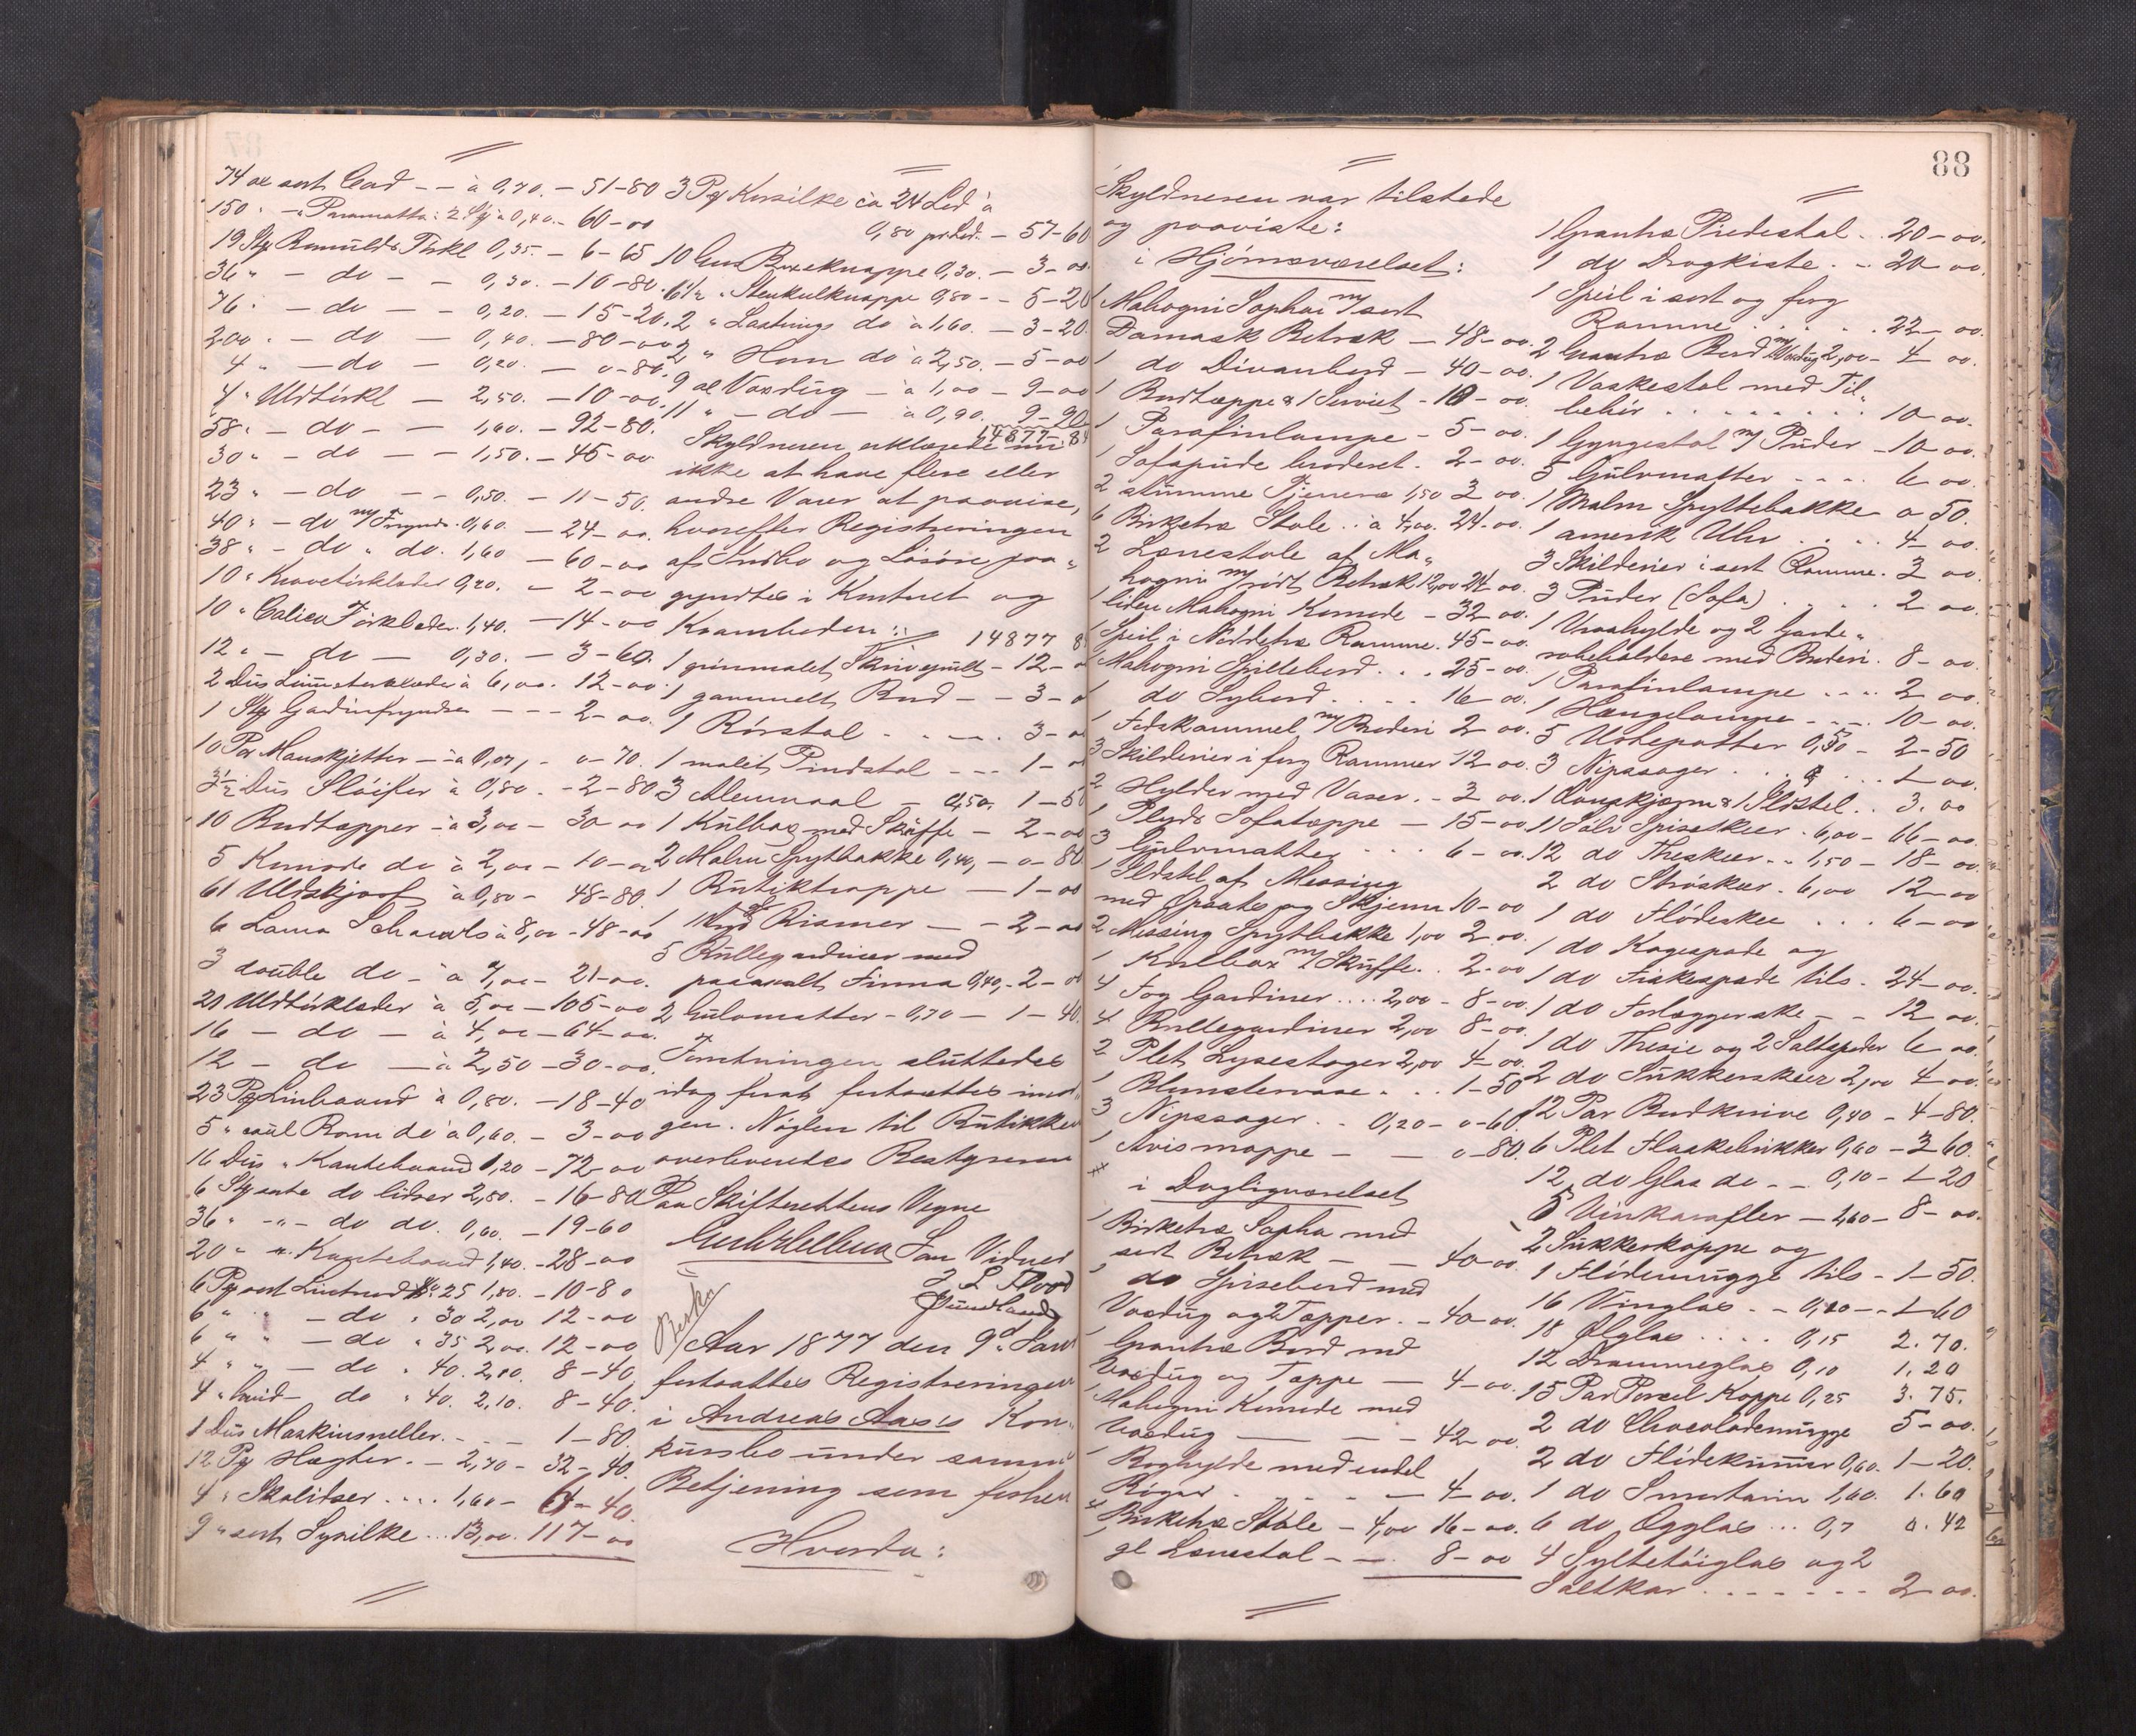 74 al sort Cord - - à 0,70. - 51-80
150 " - Paramatta: 2 Stk à 0,40. - 60-00
19 Stk Bomulds Tørkl 0,35. - 6-65
36 " - do - - 0,30. - 10-80.
76 " - do - - 0,20. - 15-20.
200 " - do - 0,40. - 80-00
4 " - do - 0,20. - 0-80.
4 " Uldtørkl - 2,50. - 10-00.
58 " - do - - 1,60. - 92-80.
30 " - do - - 1,50. - 45-00
23 " - do - - 0,50. - 11-50.
40 " - do m/ Fryndser. 0,60. - 24-00.
38 " - do " do. 1,60 - 60-00
10 " Kravetørklæder 0,20. - 2-00
10 " Calico Forklæder. 1,40. - 14-00
12 " - do - 0,30. - 3-60.
2 Dus Lommetørklæder à 6,00. 12-00.
1 Stk Gardinfryndser - - - 2-00.
10 Par Manskjetter - - à 0,07, - 0-70.
3½ Dus Sløifer à 0,80. - 2-80
10 Bordtæpper - à 3,00 - 30-00
5 Komode do à 2,00 - 10-00
61 Uldskjørt à 0,80 - 48-80.
6 Lama Schawls à 8,00 - 48-00
3 double do - à 7,00 - 21-00.
21 Uldtørklæder à 5,00 - 105-00
16 - do - à 4,00 - 64-00.
12 - do - à 2,50 - 30-00.
23 Pk Linbaand à 0,80. - 18-40
5 " do à 0,60. - 3-00
16 Dus " Kantebaand 1,20 - 72-00
6 Stk sorte do lidser 2,80. - 16-80
36 " - " - do do. 0,60. - 19-60
20 " Kantebaand 1,40. - 28-00
6 Pk sort Lintraad No 25 1,80. - 10-80
6 " " - do " 30 2,00 12-00
6 " " - do " 35 2,00. 12-00
4 " " - do " 40. 2,10. 8-40
4 " hvid - do " 40. 2,10. 8-40.
1 Dus Maskinsneller. - - - 1-80.
12 Pk Hægter. - 2,70 - 32-40.
4 " Skolidser .... 1,60 - 6-40.
9 " sort Sysilke ... 13,00. 117-00
3 Pk Knapsilke à 24 Lod à
0,80 pr Lod. - 57-60
10 Gros Buxeknappe 0,30. - 3-00.
6½ " Stenkulknappe 0,80 - - 5-20
2 " Lastings do à 1,60. - 3-20.
2 " Horn do à 2,50. - 5-00
9 al Voxdug - à 1,00 - 9-00
11 " - do - à 0,90. 9-90
14877.84
Skyldneren erklærede nu
ikke at have flere eller
andre Varer at paavise,
hvorefter Registreringen
af Indbo og Løsøre paa-
gyndtes i Kontoret og
Kramboden: 14877 8
1 grønmalet Skrivepult - 12-
1 gammelt Bord - - 3-
1 Rørstol - - - . 3-
1 malet Pindstol - - - 1-
3 Alenmaal - 0,50, 1-50
1 Kulbox med Skuffe - 2-00
2 Malm Spytbakke 0,40, - 0-80
1 Butiktrappe - 1-00
1 Bismer - - 2-00
5 Rullegardiner med
paamalt Firma 0,40, - 2-00
2 Gulvmatter - 0,70 - 1-40.
Forretningen sluttedes
idag for at fortsættes imor-
gen. Nøglen til Butikken
overleveredes Bestyreren
Paa Skifterettens Vegne
Som Vidner
J L Flood
Aar 1877 den 9de Januar
fortsattes Registreringen
i Andreas Aas's Kon-
kursbo under samme
Betjening som forhen
Hvorda:
88
Skyldneren var tilstede
og paaviste:
i Hjørneværelset:
1 Mahogni Sopha m/ sort
Damask Betræk - 48-00.
1 do Divanbord - 40-00.
1 Bordtæppe & 1 Serviet - 10-00.
1 Parafinlampe - 5-00.
1 Sofapude broderet. 2-00.
2 stumme Tjenere 1,50 3 00.
6 Birketræ Stole .. à 4,00. 24-00.
2 Lænestole af Ma-
hogni m/ rødt Betræk 12,00 24 00.
1 liden Mahogni Komode - 32 00.
1 Speil i Nøddetræ Ramme. 45-00.
1 Mahogni Spillebord . . . 25-00.
1 do Sybord . . . . 16 00.
1 Fodskammel m/ Broderi 2 00.
3 Skilderier i forg Rammer 12 00.
2 Hylder med Vaser. - 3 00.
1 Plyds Sofatæppe - 15-00
3 Gulvmatter . . . 6-00.
1 Ildstel af Messing
med Spaate og Skjerm 10-00
2 Messing Spytbakke 1,00 2 00.
1 Kulbox m/ Skuffe. . 2-00
4 Fog Gardiner .... 2,00 - 8-00.
4 Rullegardiner 2,00 8-00.
2 Plet Lysestager 2,00 4-00.
1 Blomstervase . . . 1-50
3 Nipssager . . 0,20 - 0-60.
1 Avismappe - - 0-80.
i Dagligværelset
1 Birketræ Sopha med
sort Betræk - - 40-00.
1 do Spisebord med
Voxdug og 2 Tæpper. - 40-00.
1 Grantræ Bord med
Voxdug og Tæppe - 4-00.
1 Mahogni Komode med
Voxdug - - - 42 00.
1 Boghylde med endel
Bøger . - - - - 4-00.
4 Birketræ Stole - 4,00 16-00.
1 gl Lænestol - - . 8-00
1 Grantræ Piedestal . . 20-00.
1 do Dragkiste . - 20 00.
1 Speil i sort og forg
Ramme . . . . . 22-00.
2 Grantræ Bord m/ Voxdug 2,00 - 4 00.
1 Vaskestol med Til-
behør . . . . . . . . 10 00.
1 Gyngestol m/ Puder - 10 00.
5 Gulvmatter - - - . 6 00.
1 Malm Spyttebakke 0 50.
1 amerik Uhr . . . . 4 00.
3 Skilderier i sort Ramme. 3 00.
3 Puder (Sofa) . . . . 2 00.
1 Vraahylde og 2 Garde-
robeholdere med Broderi. 8-00.
1 Parafinlampe - - - . 2 00.
1 Hængelampe - - - . 10-00.
5 Urtepotter 0,50 - 2-50
3 Nipssager . . . . . . 1 00.
1 & 1 Ildstel . . 3.00
11 Sølv Spiseskeer. 6,00 - 66-00.
12 do Theskeer . . 1,50 - 18-00.
2 do Strøskeer. 6,00 12-00
1 do Flødeskee . . . 6-00
1 do Kagespade og
1 do Fiskespade tils. 24-00.
1 do Forlæggerske - - 12 00.
1 do Thesie og 2 Saltspader 6 00.
2 do Sukkerskeer 2,00 4 00.
12 Par Bordknive 0,40 - 4-80.
6 Plet Flaskebrikker 0,60 - 3 60.
12 do Glas do - - 0,10 - 1-20
5 Vinkarafler - 1,60 - 8-00.
2 Sukkerkoppe og
1 Flødemugge tils - 1-50.
16 Vinglas . - 0,10 - - 1-60
18 Ølglas . . . . 0,15 2.70.
12 Drammeglas 0,10 1.20
15 Par Porcel Koppe 0,25 3.75.
2 do Chocolademugge 5-00.
2 do Flødekummer 0,60. 1-20.
1 do Smørterrin 1,60. 1.60
6 do Ægglas ... 0,7 0.42
4 Syltetøiglas og 2
Saltkar . . - - - - - 2-00.